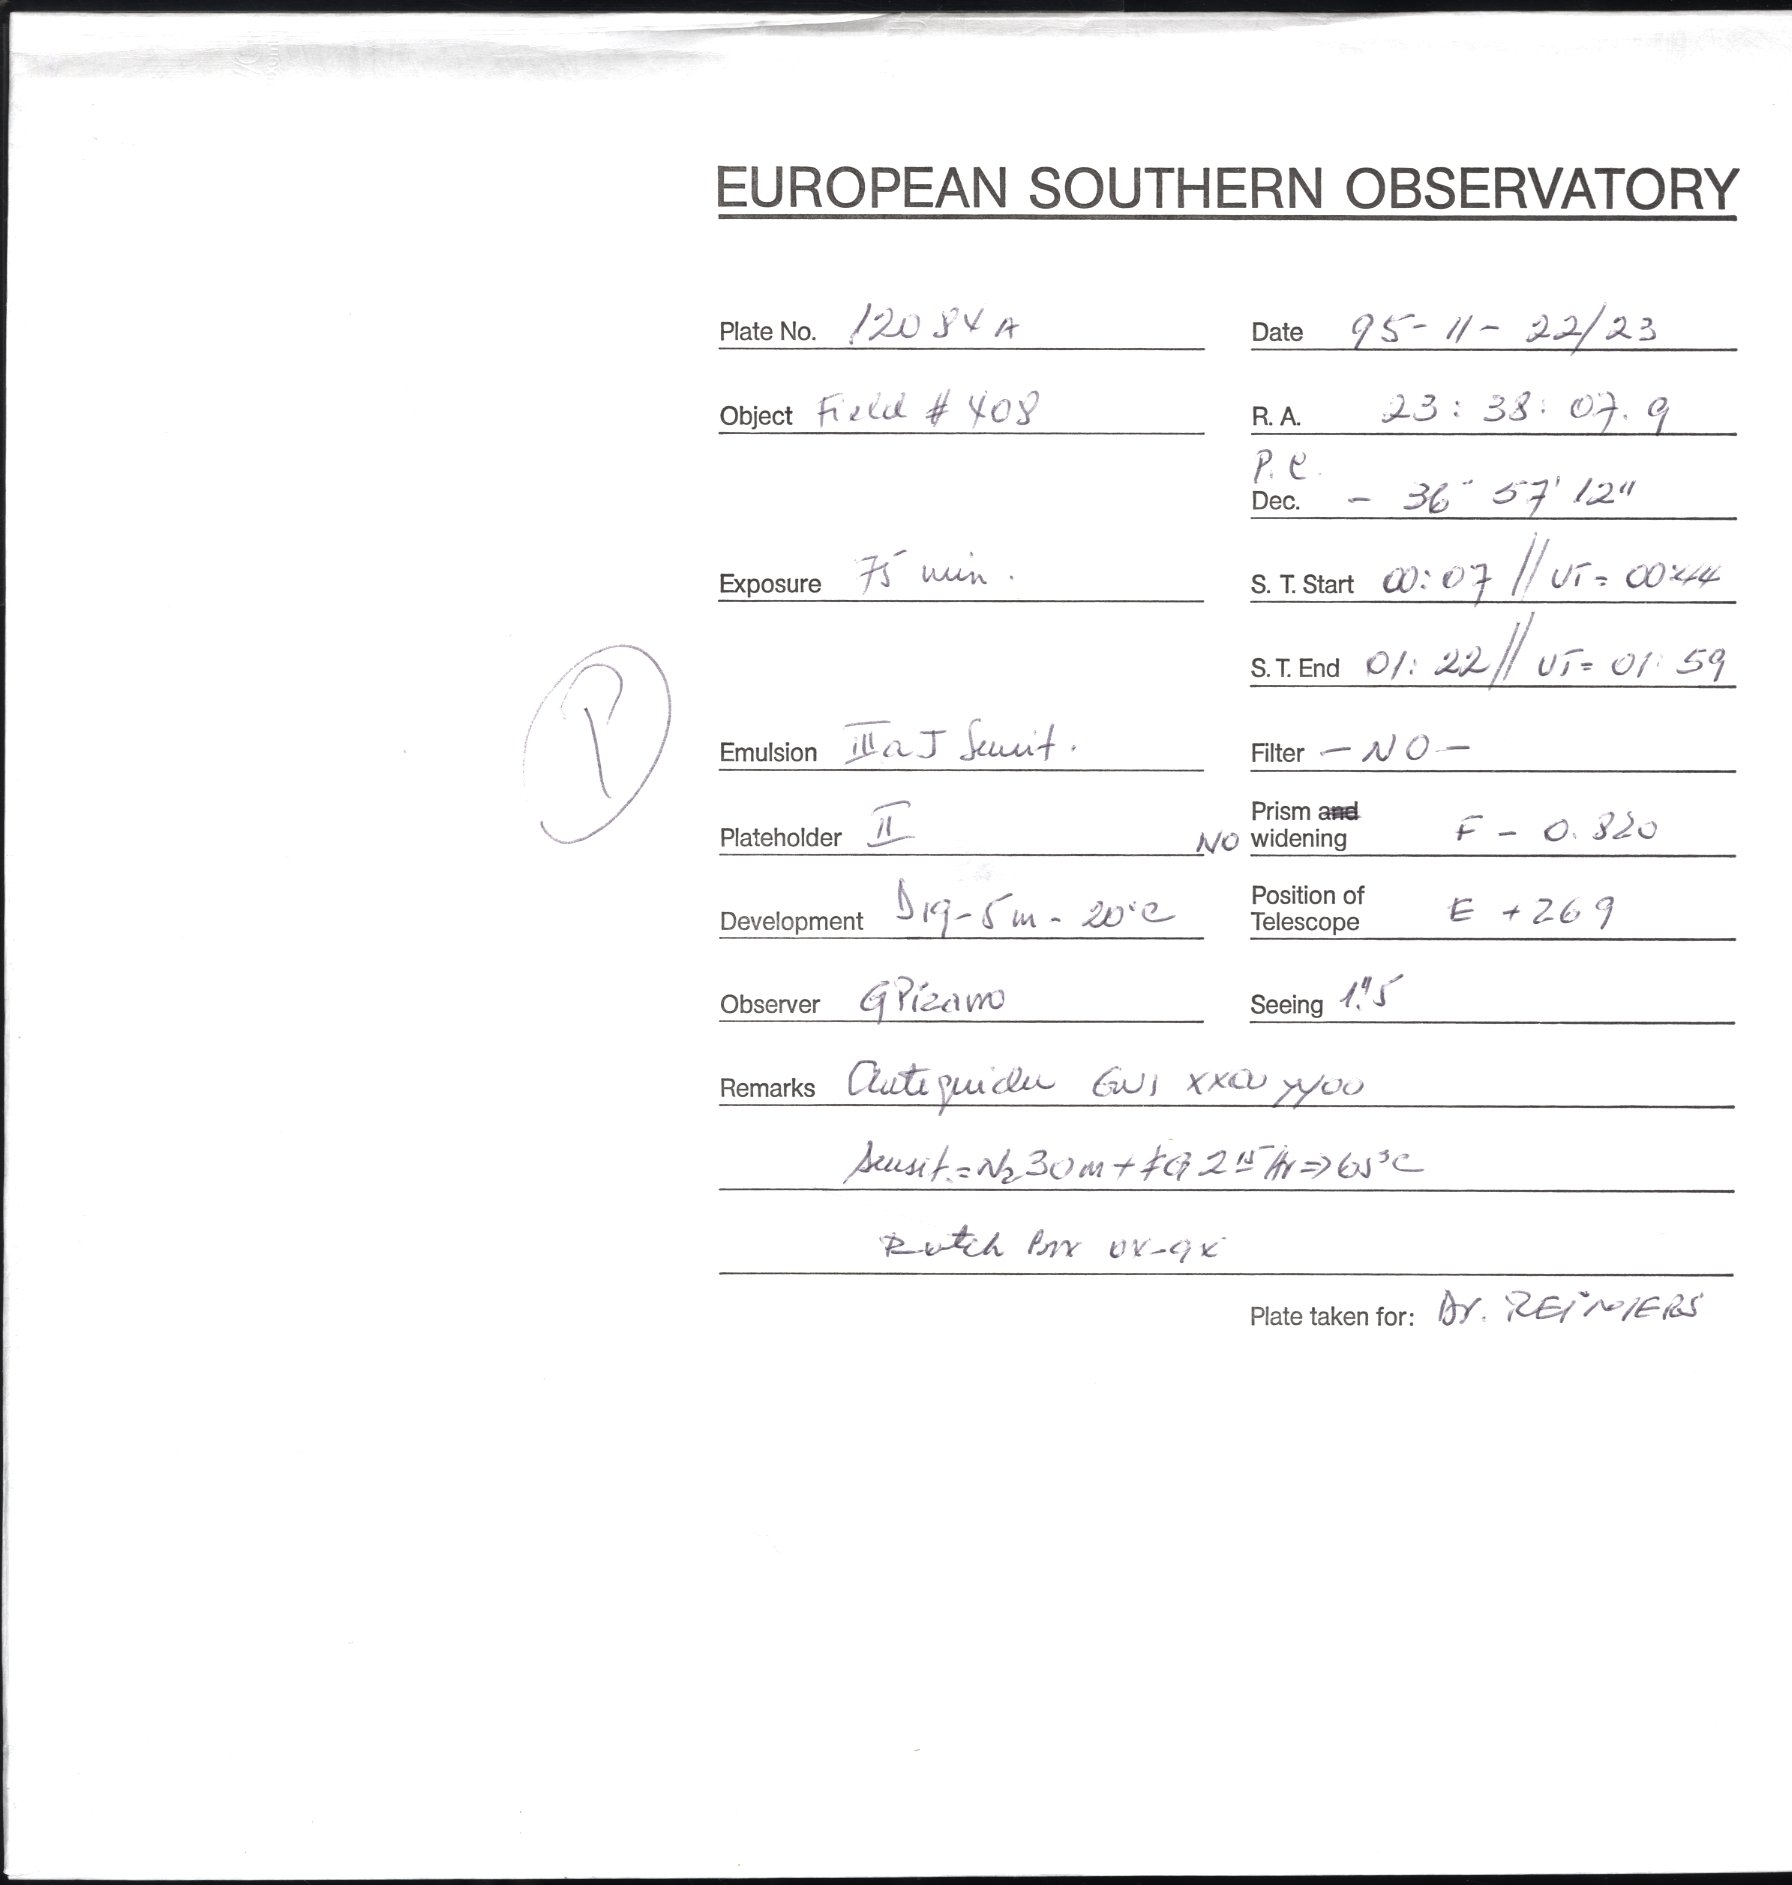 EUROPEAN SOUTHERN OBSERVATORY
Plate No. 12084A Date 95-11-22/23
Object Field #408 R. A. 23:38:07.9
P. C.
Dec. - 36° 57' 12"
Exposure 75 min. S. T. Start 00:07 // UT= 00:44
S. T. End 01:22 // UT= 01:59
P
Emulsion IIIaJ Sensit. Filter -NO-
Plateholder II NO Prism and widening F - 0.820
Development D19-5m-20°C Position of Telescope E +269
Observer GPizarro Seeing 1."5
Remarks Autoguider GW1 XX00 YY00
Sensit.=N2 30m+FG 2 Hr=>65°C
Batch 0X-9X
Plate taken for: Dr. REIMERS